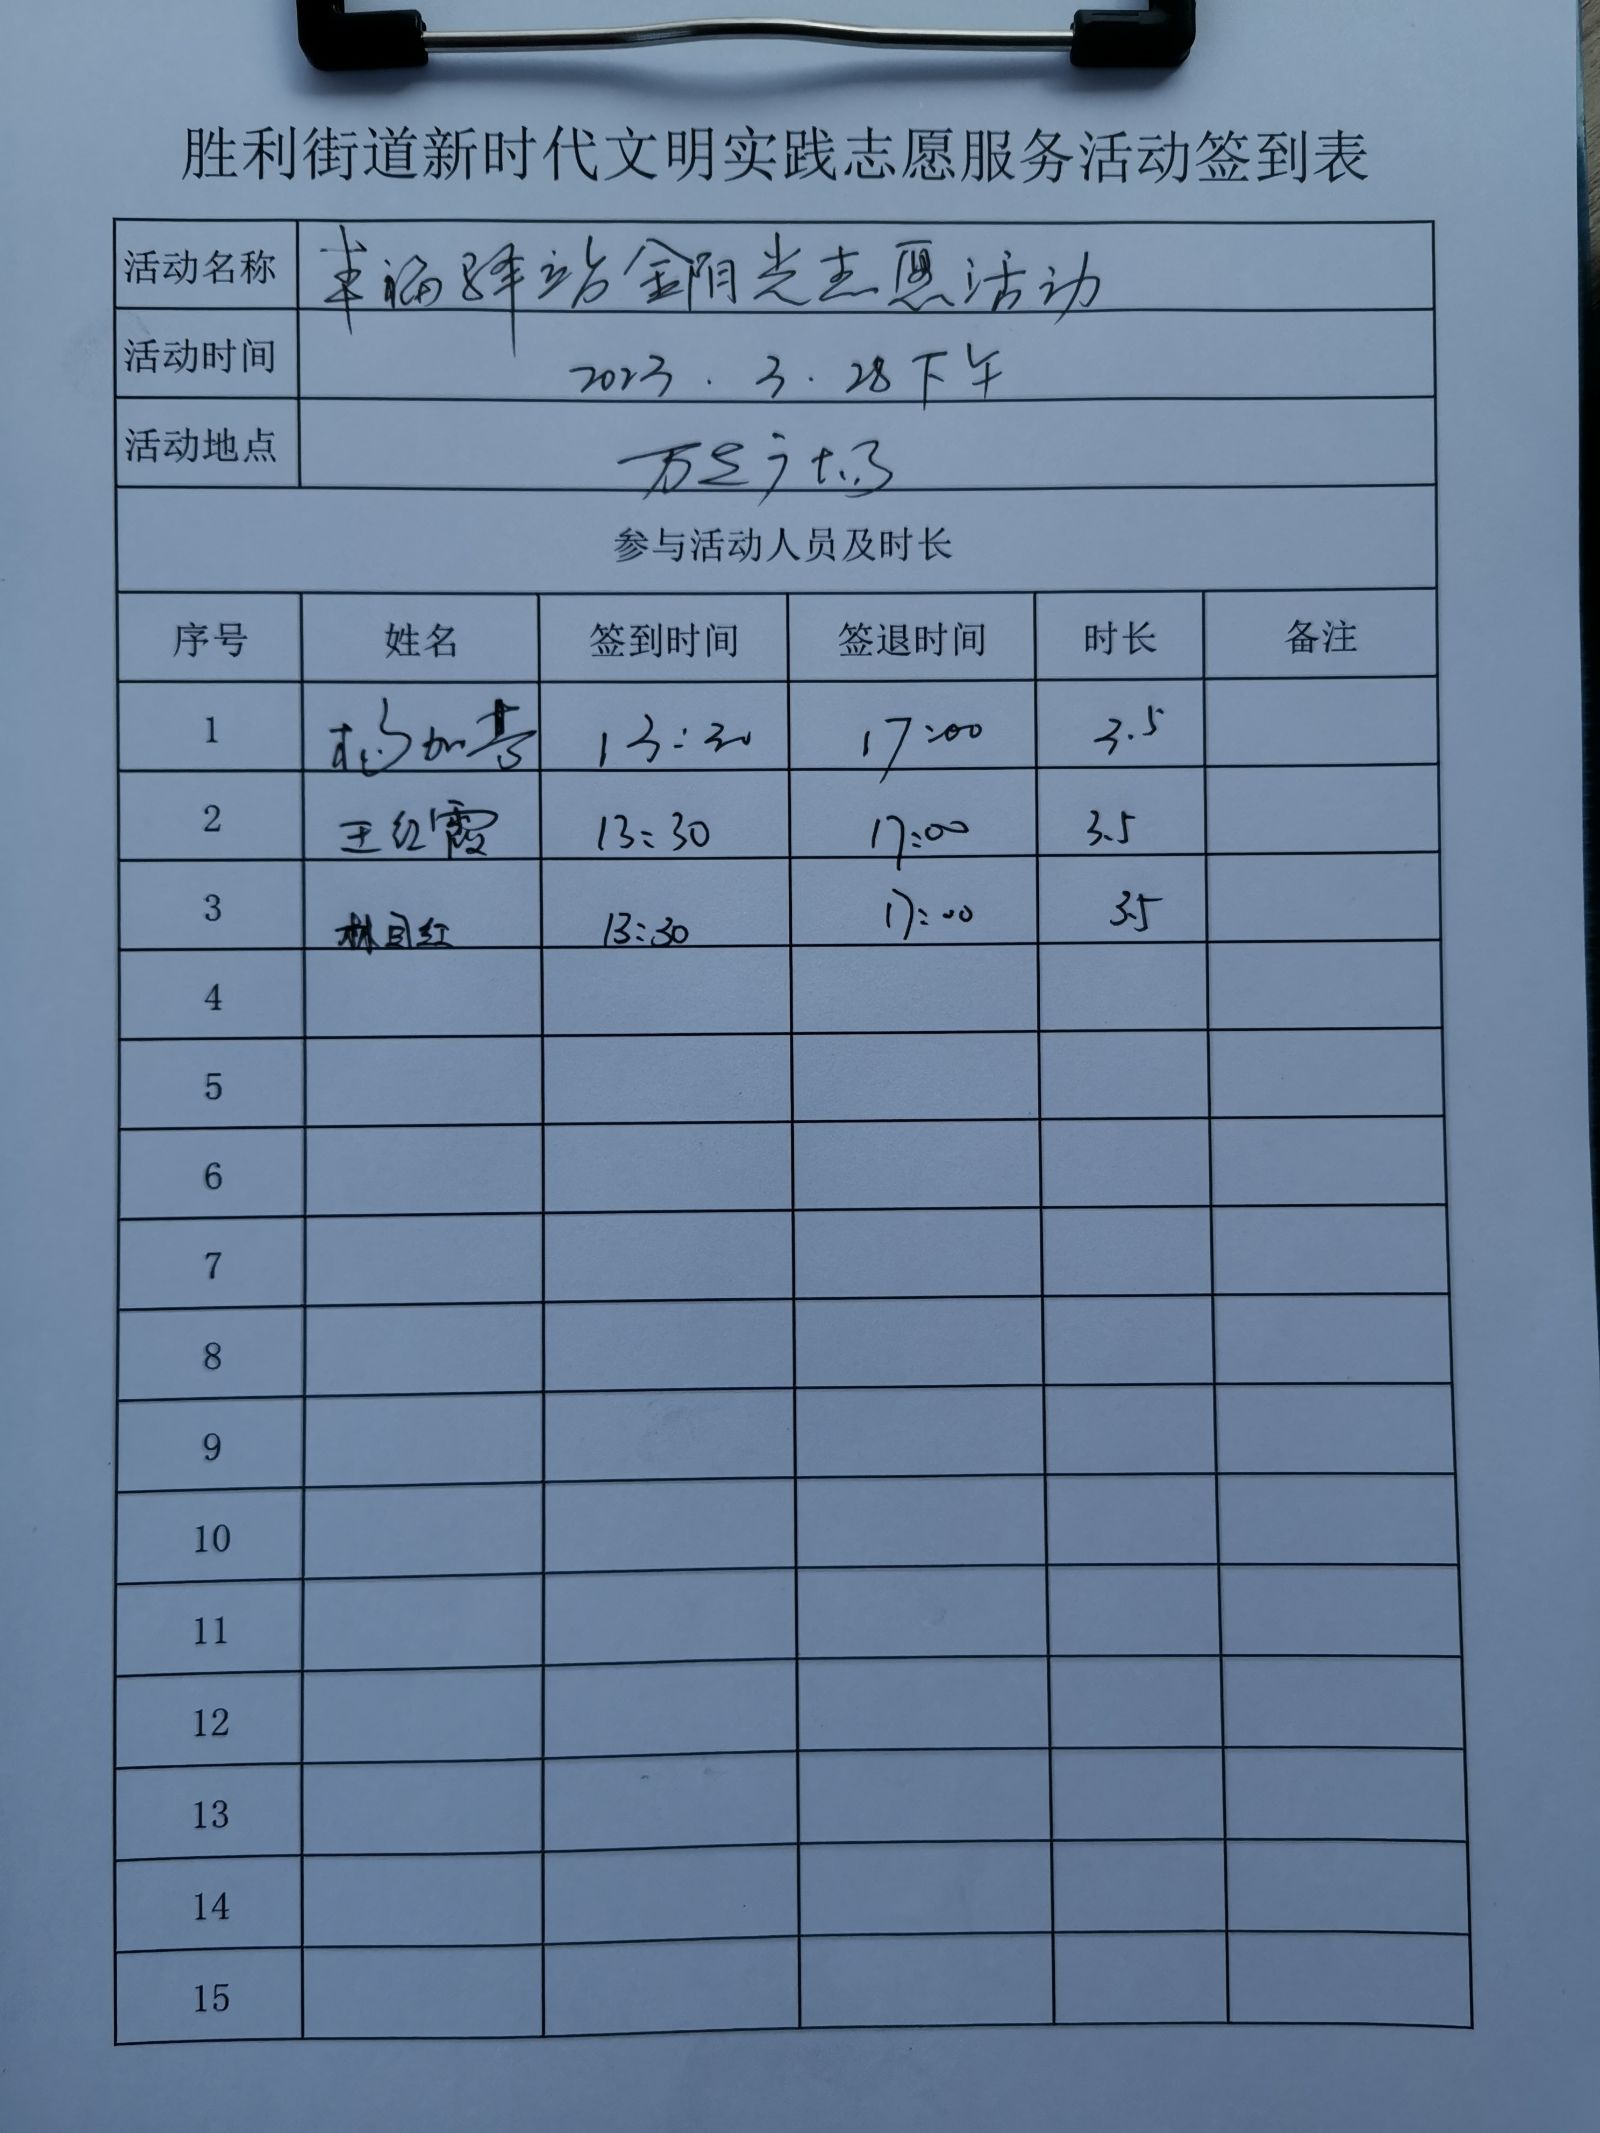 胜利街道新时代文明实践志愿服务活动签到表
活动名称 幸福驿站金阳光志愿活动
活动时间 2023.3.28下午
活动地点 万达广场
参与活动人员及时长
序号 姓名 签到时间 签退时间 时长 备注
1 杨加 13:30 17:00 3.5
2 王红霞 13:30 17:00 3.5
3 林红 13:30 17:00 3.5
4
5
6
7
8
9
10
11
12
13
14
15